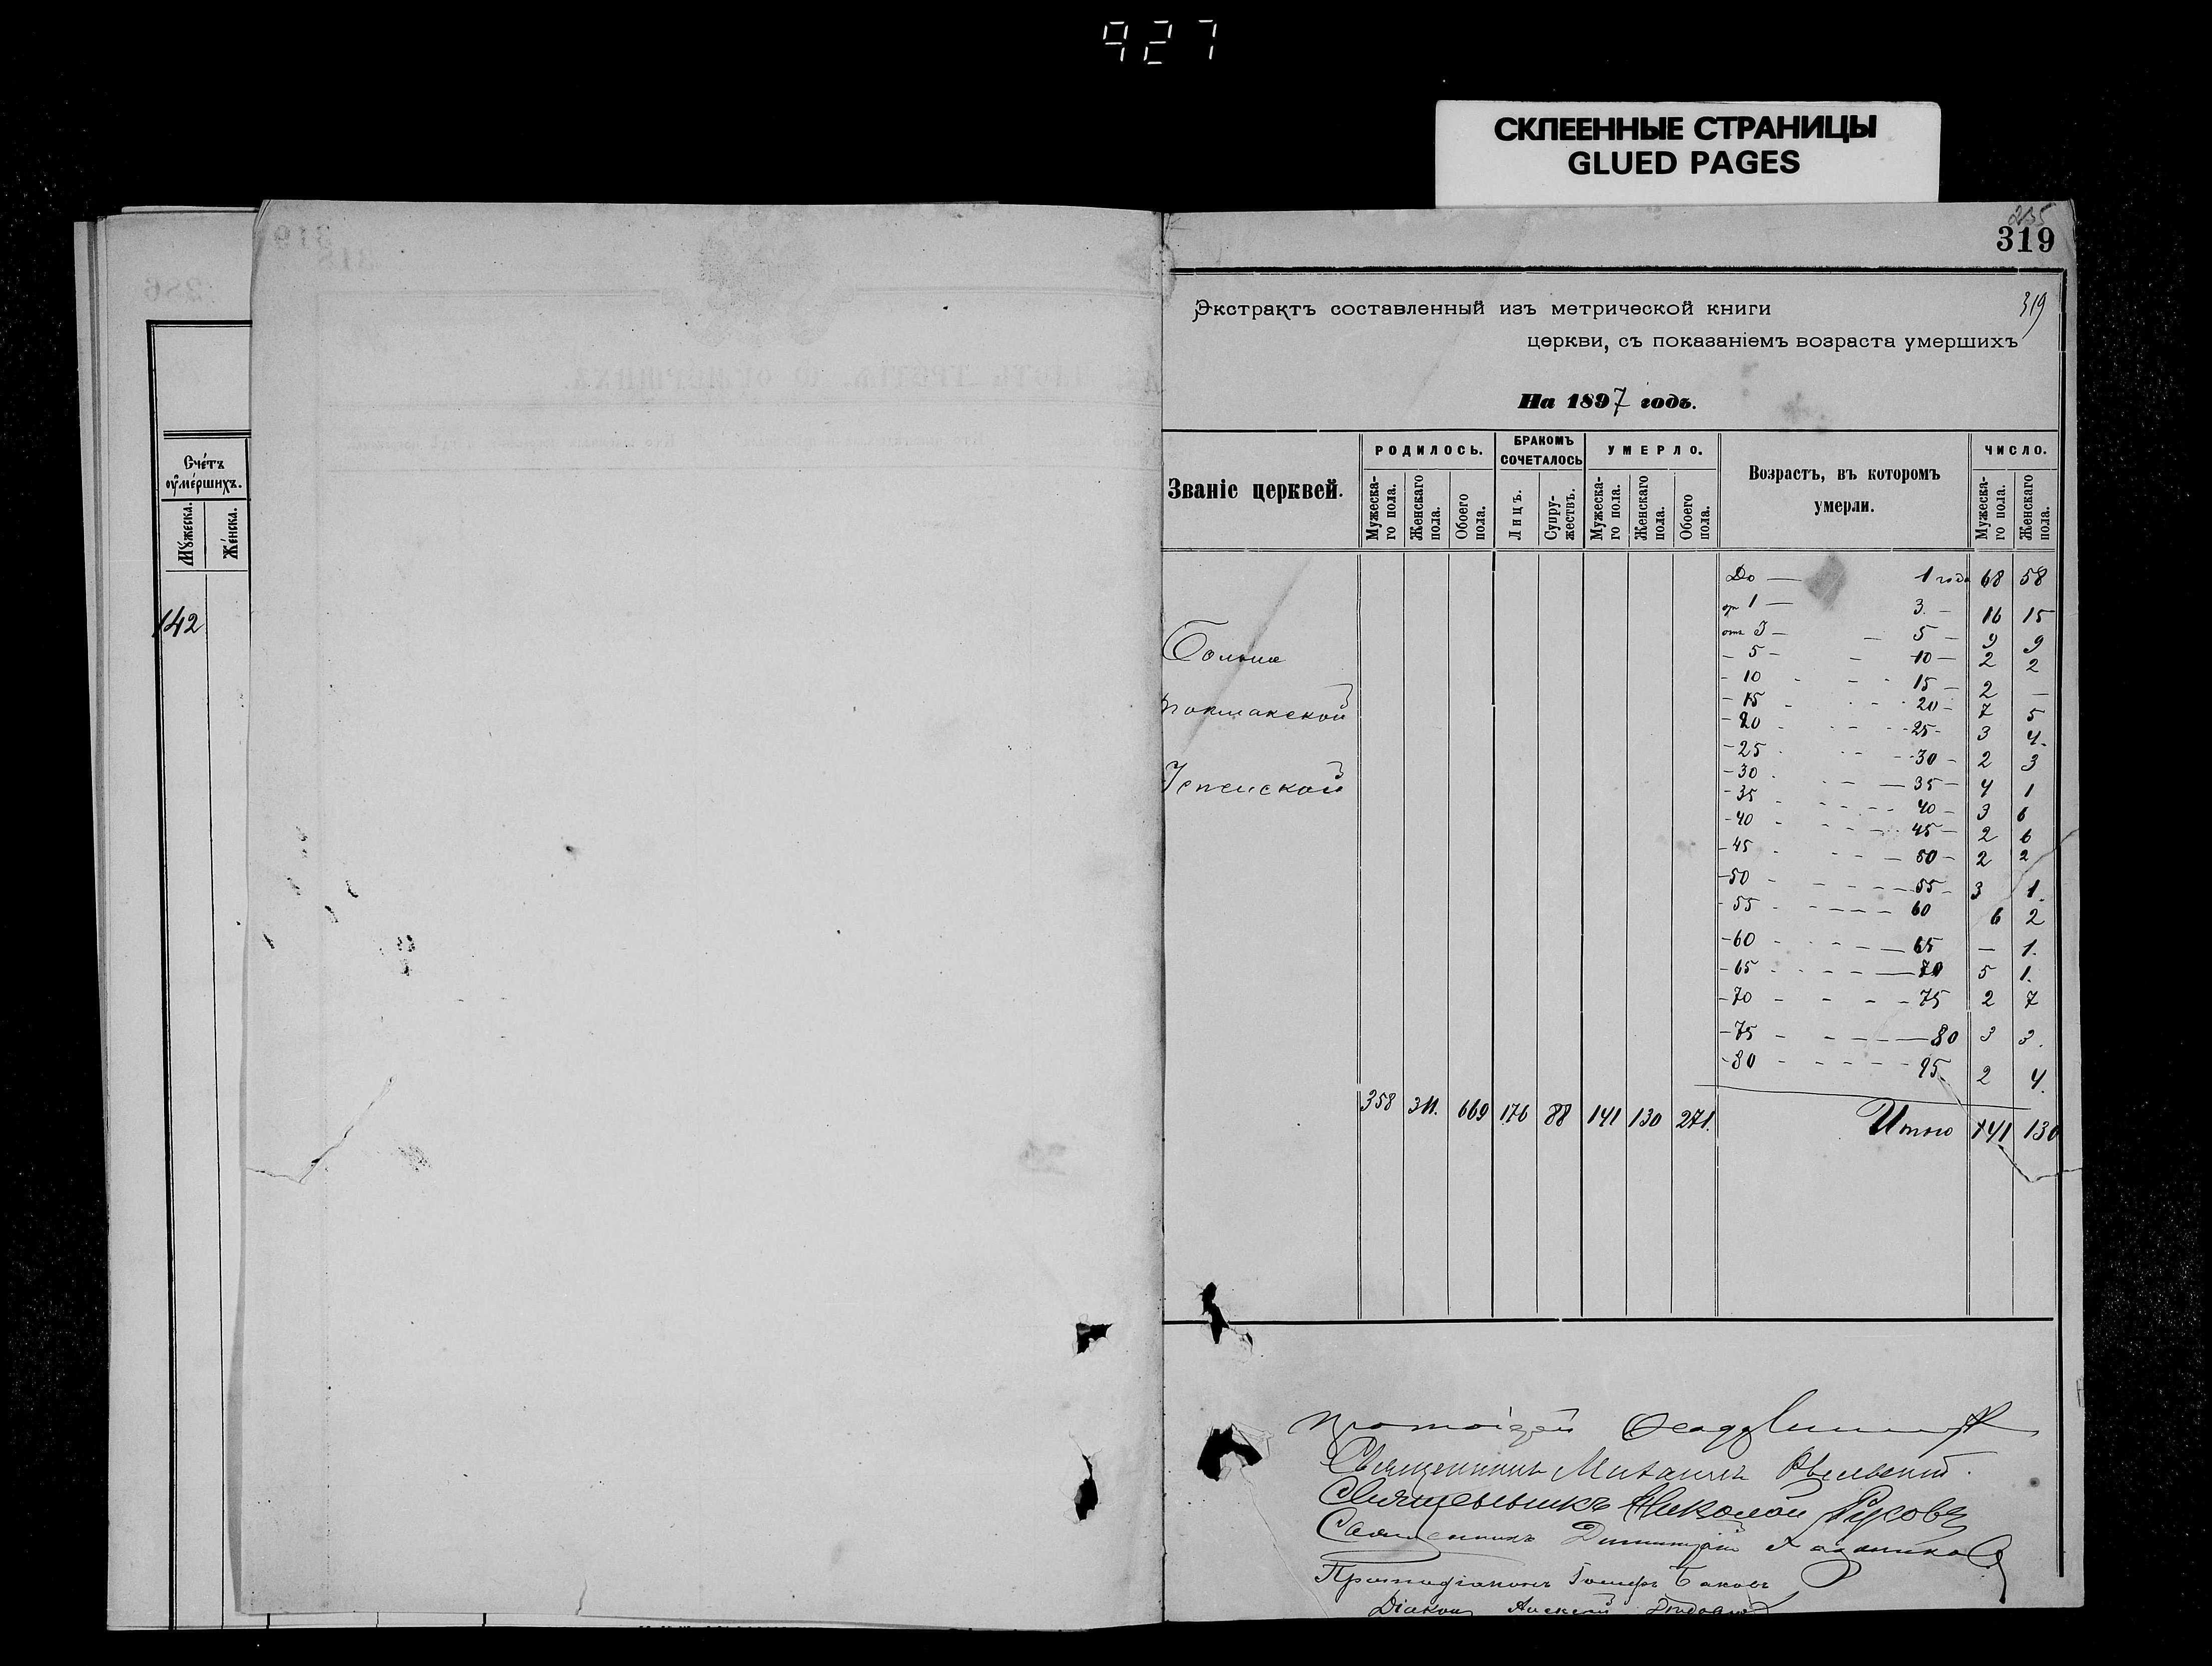 927
СКЛЕЕННЫЕ СТРАНИЦЫ
GLUED PAGES
Счéтъ
оумéршихъ.
Мꙋжеска.
Жéнска.
142
235
319
319
Экстрактъ составленный изъ метрической книги
церкви, съ показаніемъ возраста умершихъ
На 1897 годъ.
Званіе церквей.
РОДИЛОСЬ.
БРАКОМЪ СОЧЕТАЛОСЬ
УМЕРЛО.
Возрастъ, въ которомъ умерли.
ЧИСЛО.
Мужеска-го пола.
Женскаго пола.
Обоего пола.
Лицъ.
Супру-жествъ.
Мужеска-го пола.
Женскаго пола.
Обоего пола.
Мужеска-го пола.
Женскаго пола.
До — 1 года 68 58
от 1 — 3. - 16 15
отъ 3 - - 5 - 9 9
Больше
- 5 - - 10 - 2 2
- 10 - - 15 - 2 —
- 15 - - 20 - 7 5
токмакской
- 20 - - 25 - 3 4.
- 25 - - 30 - 2 3
Успенской
- 30 - — 35 - 4 1
- 35 - - 40 - 3 6
- 40 - - 45 - 2 6
- 45 - - 50 - 2 2
- 50 - - 55 - 3 1.
- 55 - - 60 6 2
- 60 - - 65 — 1.
- 65 - — 70 5 1.
- 70 - - 75 2 7
- 75 - — 80 3 3.
- 80 - - 95. 2 4.
358 311. 669 176 88 141 130 271. Итого 141 130
протоіерей
Священникъ Михаилъ
Священникъ Николай Русовъ
Священникъ Димитрій
Протодіаконъ
Діаконъ Алексей